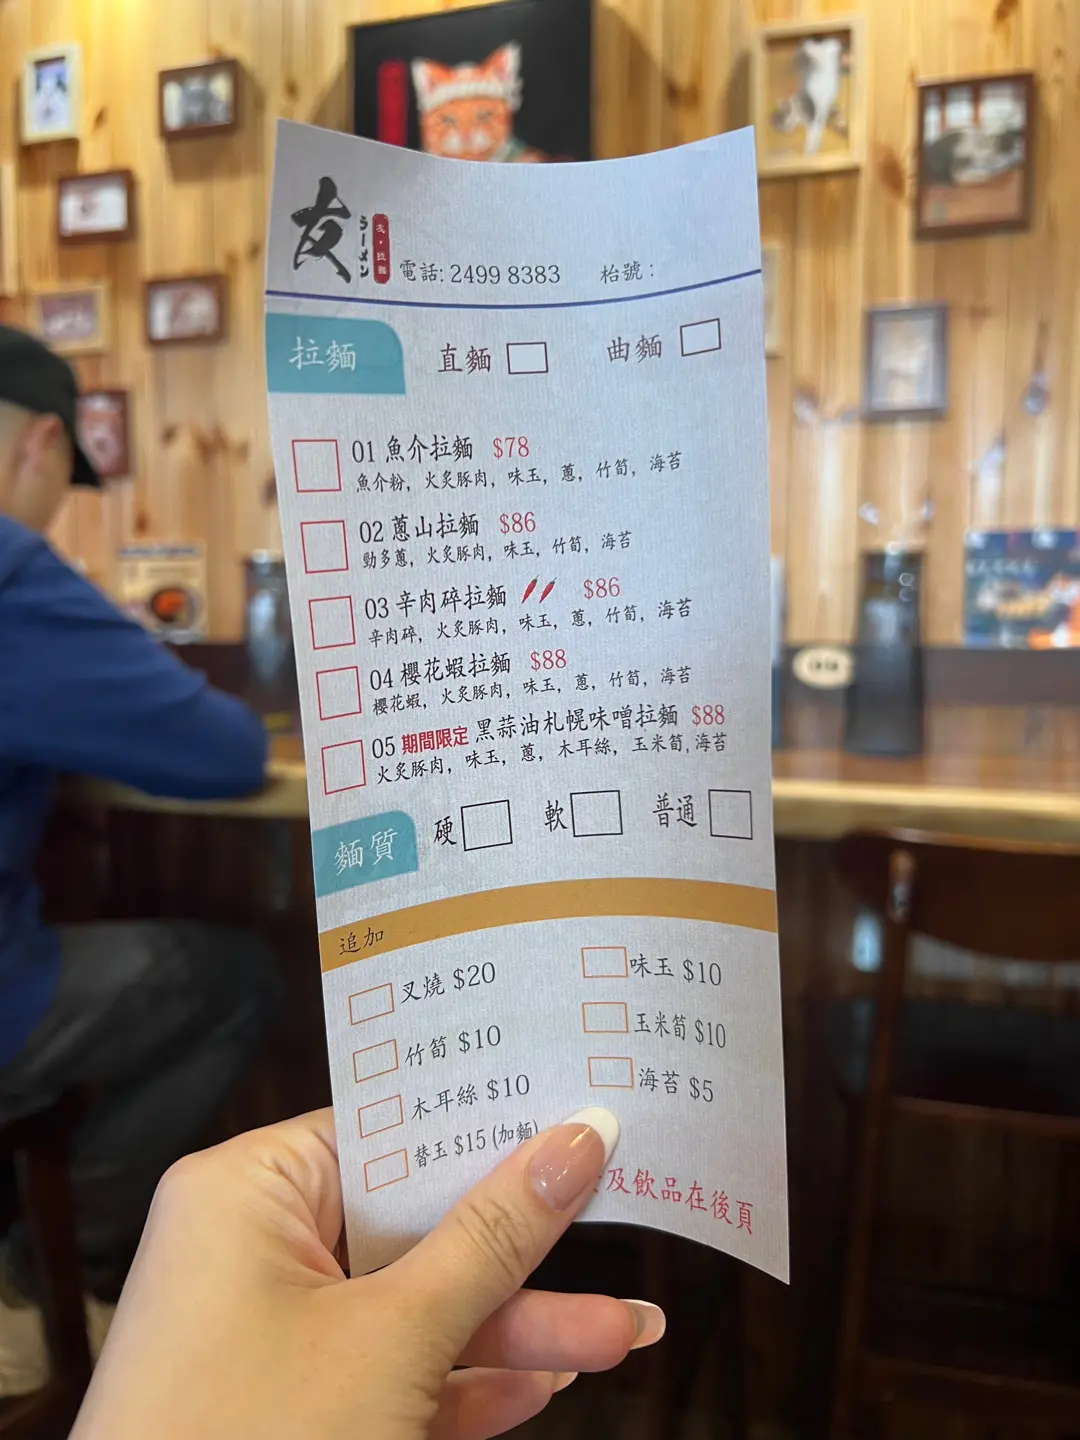 友
ラーメン
友・拉麵
電話: 2499 8383 枱號 :
拉麵 直麵 曲麵
01 魚介拉麵 $78
魚介粉, 火炙豚肉, 味玉, 蔥, 竹筍, 海苔
02 蔥山拉麵 $86
勁多蔥, 火炙豚肉, 味玉, 竹筍, 海苔
03 辛肉碎拉麵 $86
辛肉碎, 火炙豚肉, 味玉, 蔥, 竹筍, 海苔
04 櫻花蝦拉麵 $88
櫻花蝦, 火炙豚肉, 味玉, 蔥, 竹筍, 海苔
05 期間限定 黑蒜油札幌味噌拉麵 $88
火炙豚肉, 味玉, 蔥, 木耳絲, 玉米筍, 海苔
麵質 硬 軟 普通
追加
叉燒 $20 味玉 $10
竹筍 $10 玉米筍 $10
木耳絲 $10 海苔 $5
替玉 $15 (加麵)
及飲品在後頁